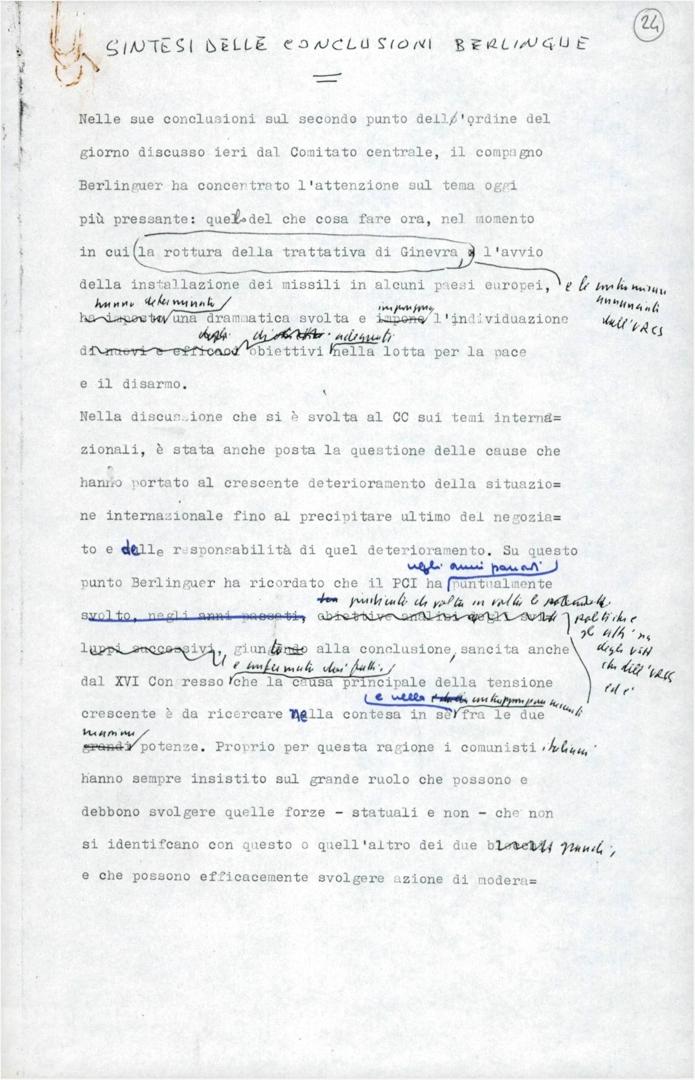 24
SINTESI DELLE CONCLUSIONI BERLINGUE
Nelle sue conclusioni sul secondo punto dell'ordine del
giorno discusso ieri dal Comitato centrale, il compagno
Berlinguer ha concentrato l'attenzione sul tema oggi
più pressante: quel del che cosa fare ora, nel momento
in cui la rottura della trattativa di Ginevra, l'avvio
della installazione dei missili in alcuni paesi europei, e le contromisure
annunciate
dall'URSS
hanno determinato
ha imposto una drammatica svolta e impone l'individuazione
impongono
degli adeguati
di nuovi e efficaci obiettivi nella lotta per la pace
e il disarmo.
Nella discussione che si è svolta al CC sui temi interna=
zionali, è stata anche posta la questione delle cause che
hanno portato al crescente deterioramento della situazio=
ne internazionale fino al precipitare ultimo del negozia=
to e delle responsabilità di quel deterioramento. Su questo
negli anni passati
punto Berlinguer ha ricordato che il PCI ha puntualmente
di volta in volta le
svolto, negli anni passati, obiettive analisi degli svi=
politiche e
gli atti
degli USA
che dell'URSS
ed è
luppi successivi, giungendo alla conclusione, sancita anche
e confermata dai fatti,
dal XVI Con resso che la causa principale della tensione
e nella contrapposizione
crescente è da ricercare nella contesa in sé fra le due
massime
grandi potenze. Proprio per questa ragione i comunisti italiani
hanno sempre insistito sul grande ruolo che possono e
debbono svolgere quelle forze - statuali e non - che non
si identifcano con questo o quell'altro dei due grandi,
e che possono efficacemente svolgere azione di modera=